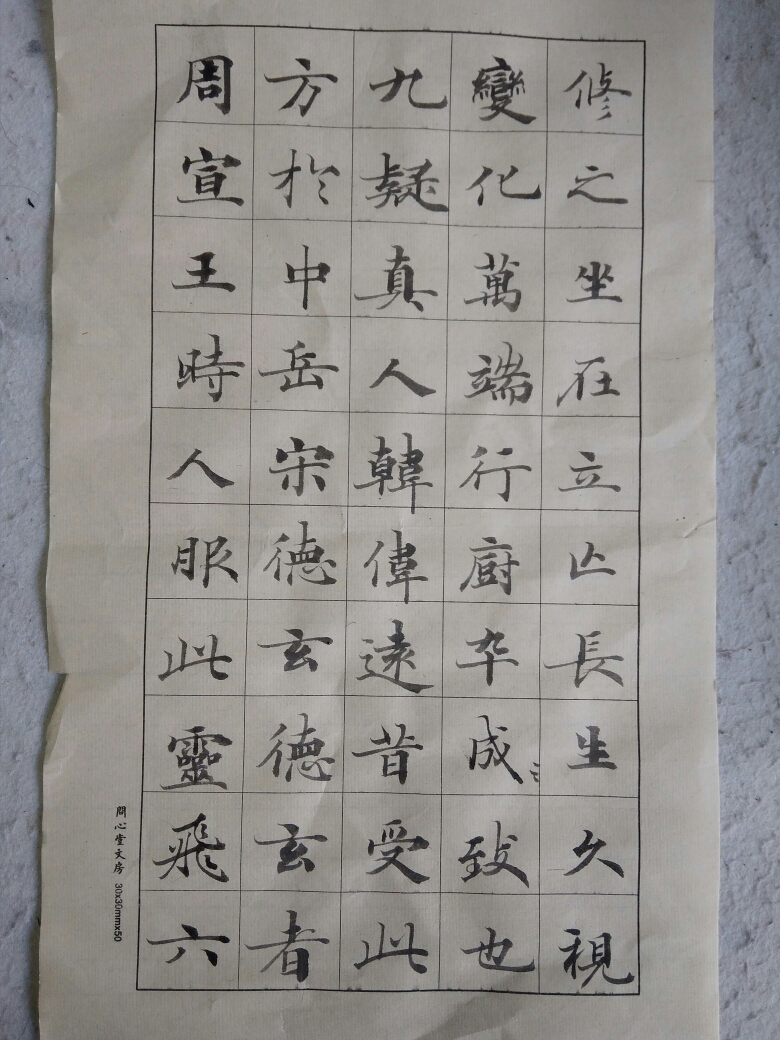 修之坐在立亡長生久視
變化萬端行廚卒成致也
九疑真人韓偉遠昔受此
方於中岳宋德玄德玄者
周宣王時人服此靈飛六
問心堂文房 30x30mmx50